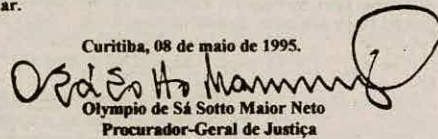 ar.
Curitiba, 08 de maio de 1995.
Olympio de Sá Sotto Maior Neto
Procurador-Geral de Justiça